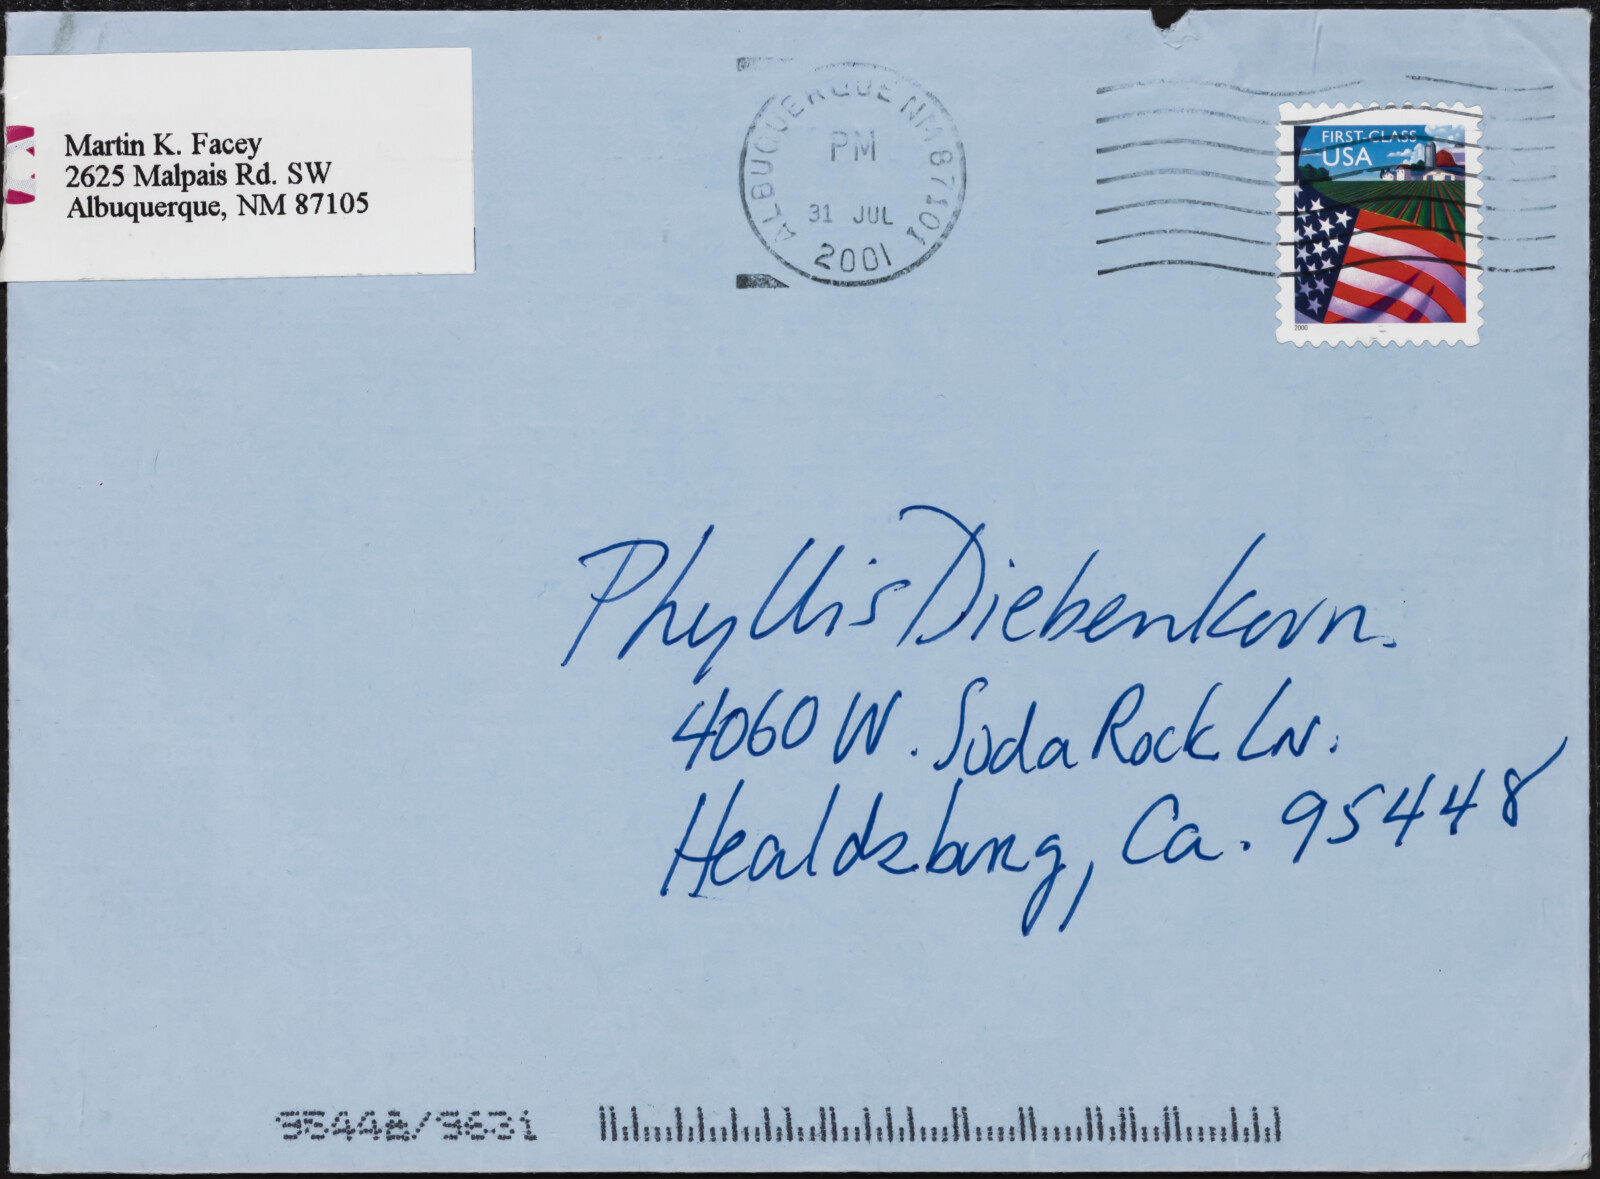 Martin K. Facey
2625 Malpais Rd. SW
Albuquerque, NM 87105
ALBUQUERQUE NM 87101
PM
31 JUL
2001
FIRST-CLASS
USA
2000
Phyllis Diebenkorn
4060 W. Soda Rock Ln.
Healdsburg, Ca. 95448
95448/9631